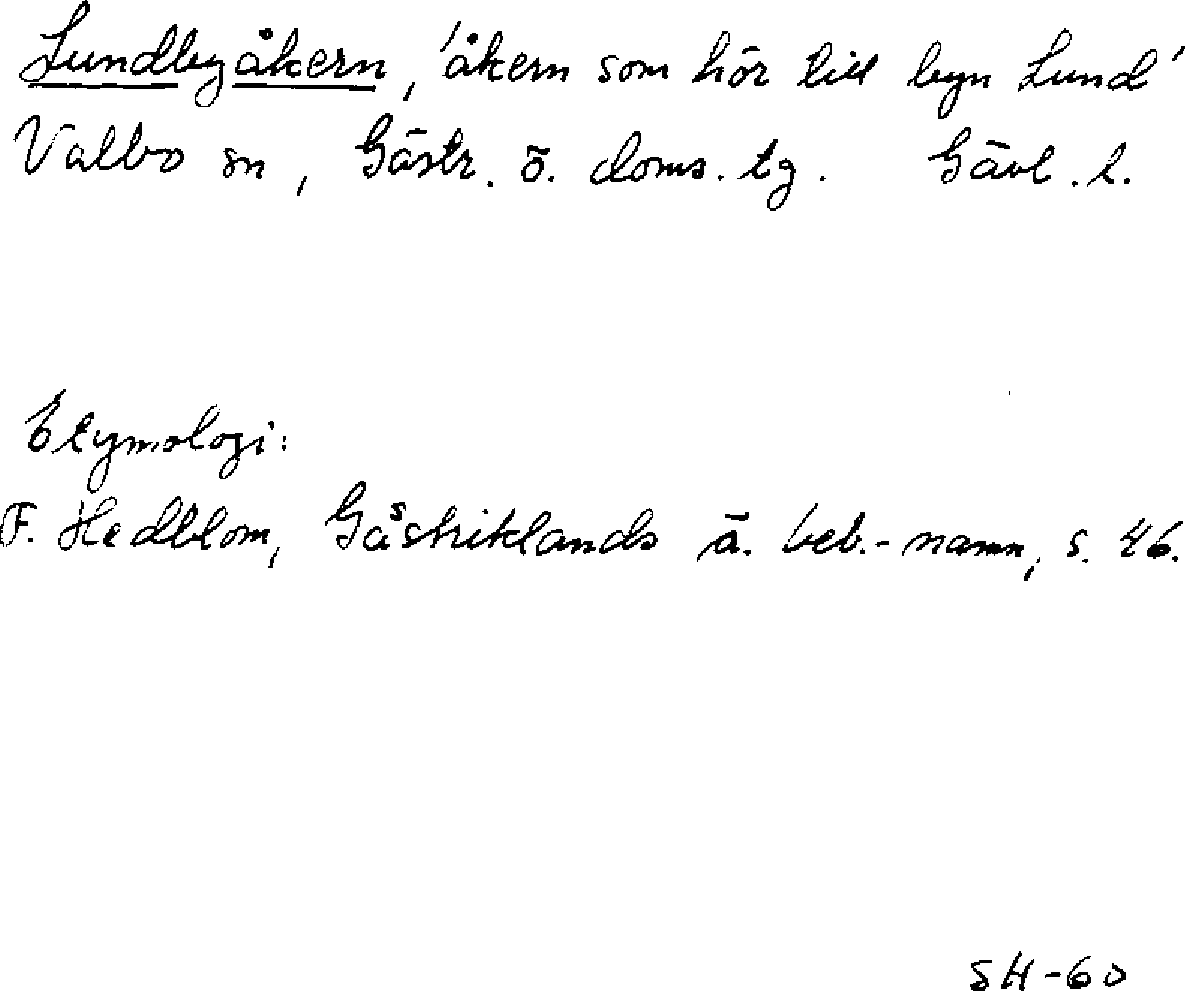 Lundbyåkern, 'åkern som hör till byn Lund'
Valbo sn, Gästr. ö. doms. tg. Gävl. l.
Etymologi:
F. Hedblom, Gästriklands ä. beb.-namn, s. 46.
SH-60